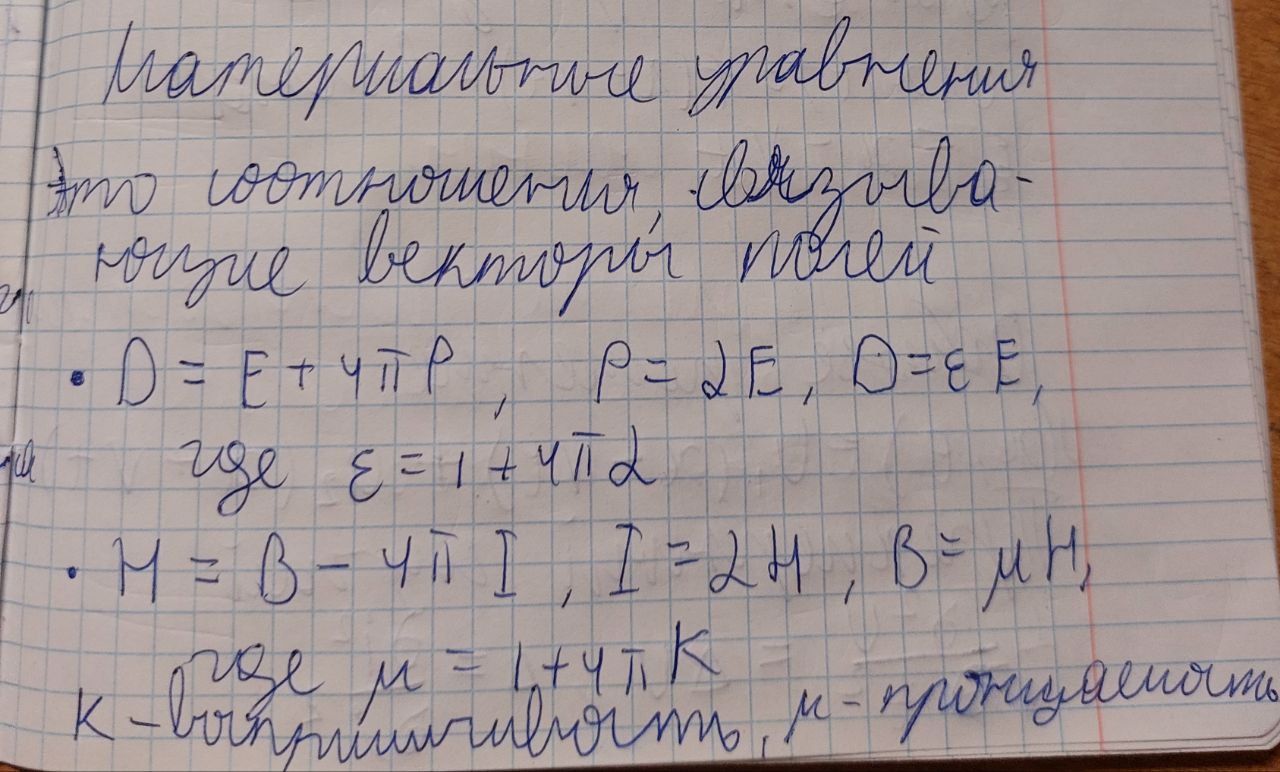 Материальные уравнения
Это соотношения, связыва-
ющие векторы полей
• D = E + 4πP, P = αE, D = εE,
где ε = 1 + 4πα
• H = B - 4πI, I = αH, B = μH,
где μ = 1 + 4πK
K - восприимчивость, μ - проницаемость